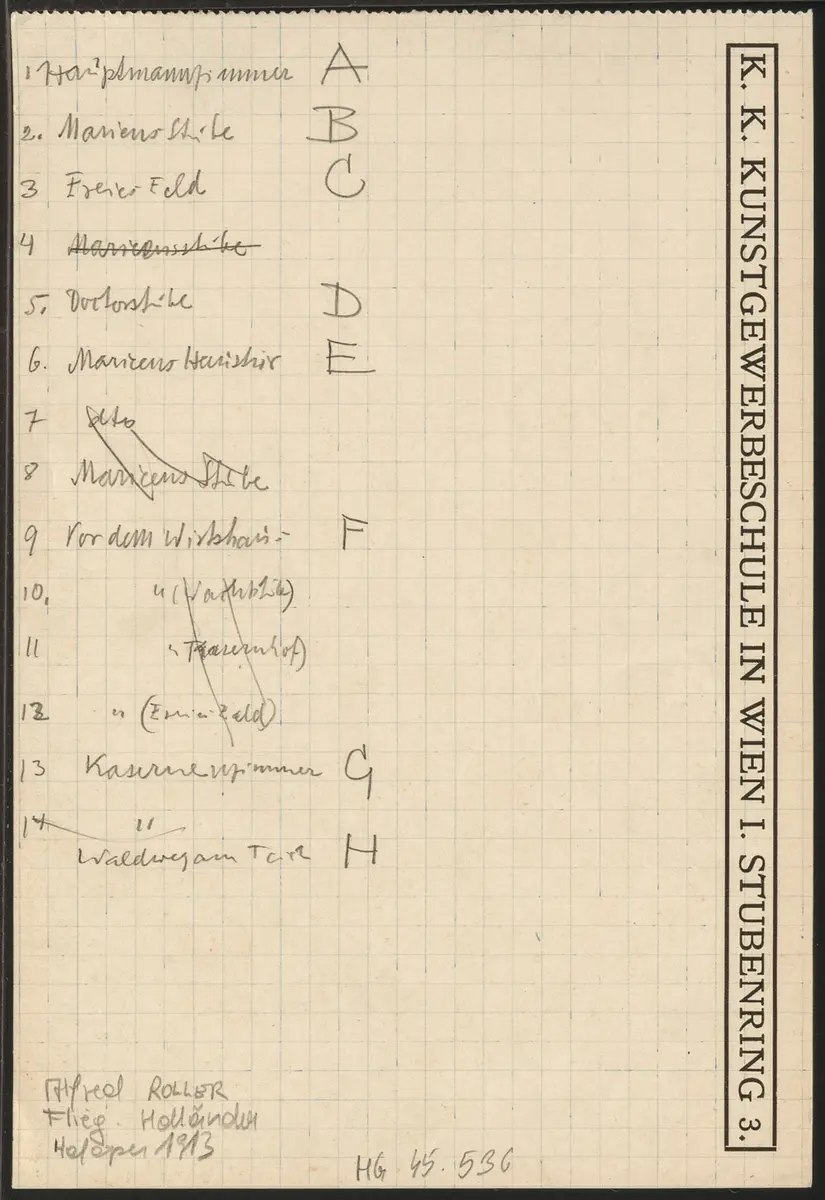 1 Hauptmannzimmer A
2. Mariens Stube B
3 Freies Feld C
4 Mariensstube
5. Doctorstube D
6. Mariens Haustür E
7 dto
8 Mariens Stube
9 Vor dem Wirtshaus F
10. " (Wachtstube)
11 " Kasernhof)
12 " (Freies Feld)
13 Kasernenzimmer G
14 "
Waldweg am Teich H
Alfred ROLLER
Flieg. Holländer
Hofoper 1913
HG 45.536
K. K. KUNSTGEWERBESCHULE IN WIEN I. STUBENRING 3.